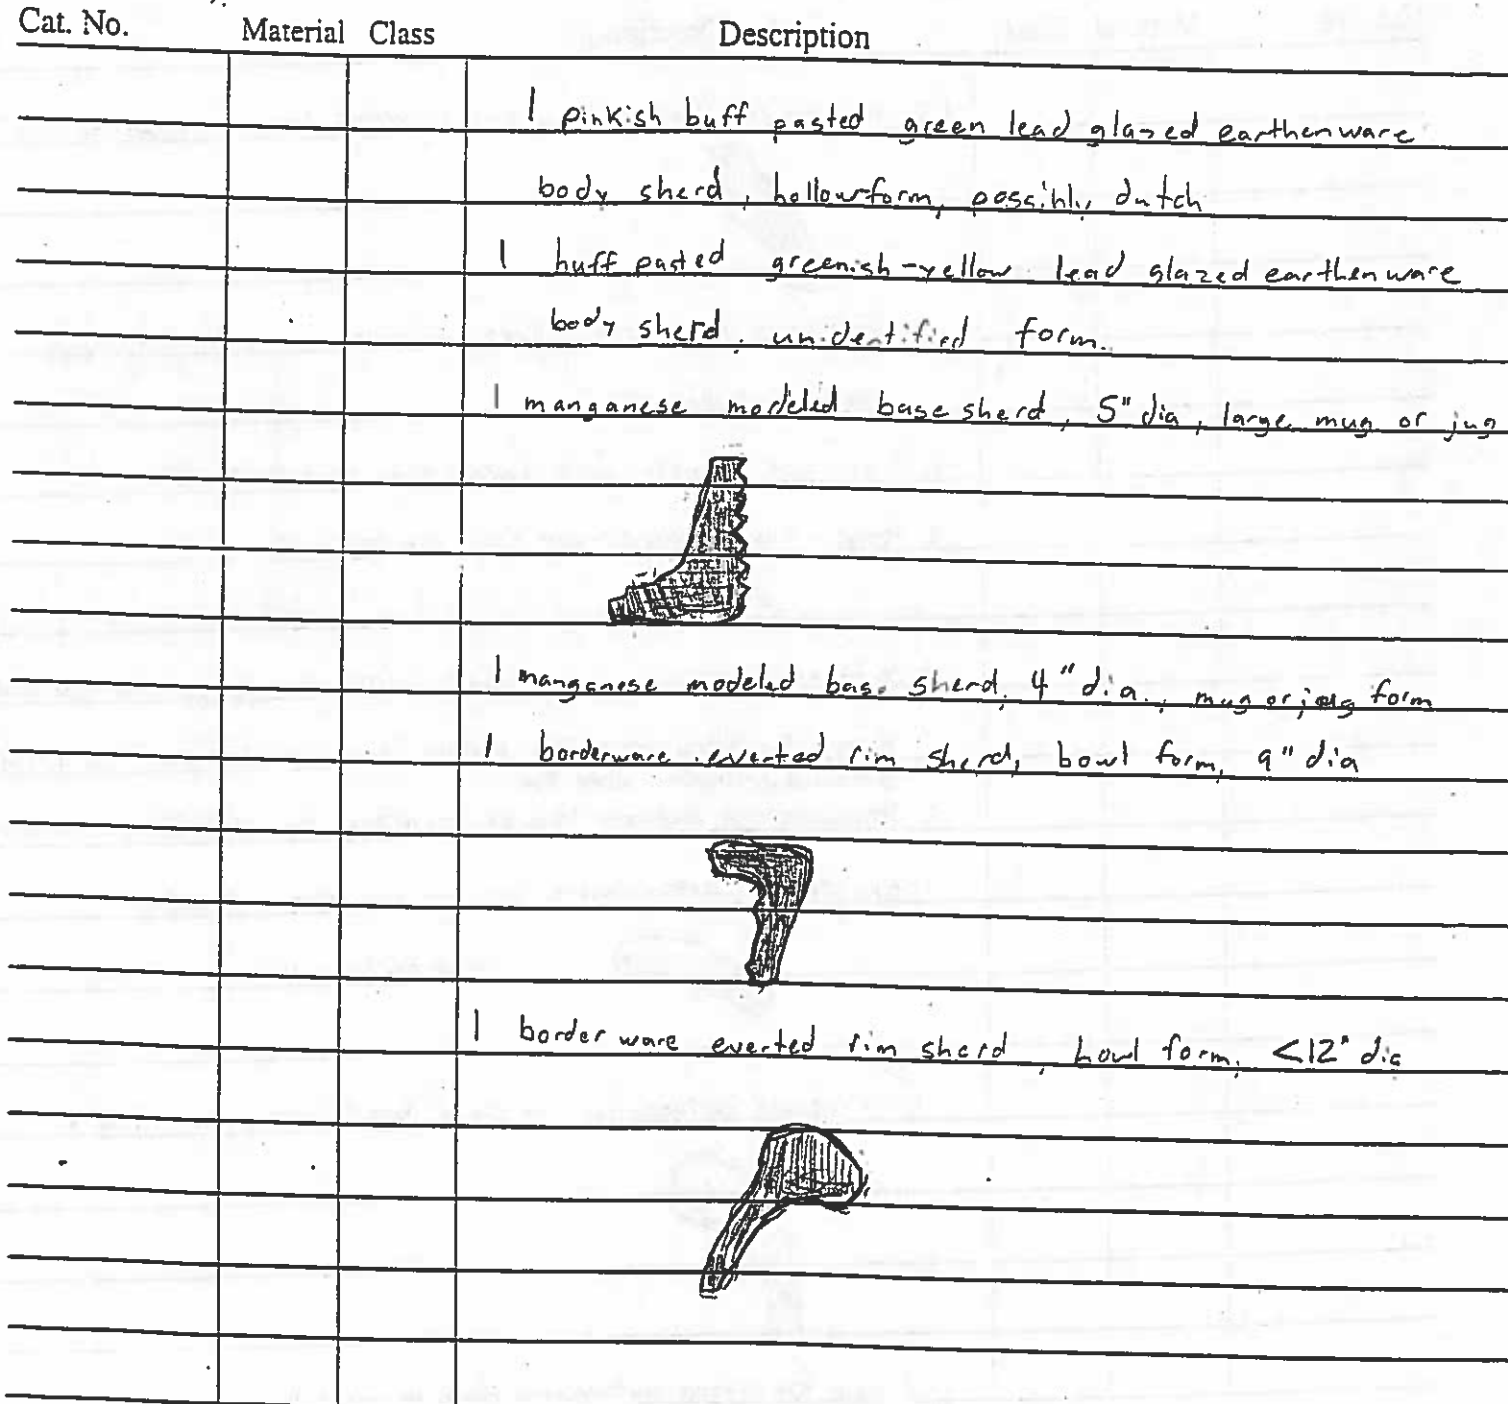 Cat. No. Material Class Description
1 pinkish buff pasted green lead glazed earthenware
body sherd, hollow form, possibly dutch
1 buff pasted greenish-yellow lead glazed earthenware
body sherd, unidentified form.
1 manganese modeled base sherd, 5" dia, large mug or jug
1 manganese modeled base sherd, 4" dia., mug or jug form
1 borderware everted rim sherd, bowl form, 9" dia
1 border ware everted rim sherd, bowl form, <12" dia